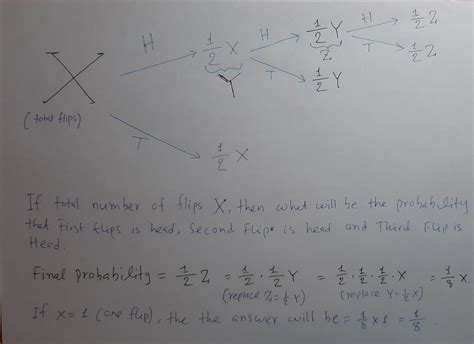 H 1/2 Z
H 1/2 Y
H 1/2 X Z T 1/2 Z
X Y T 1/2 Y
(total flips)
T
1/2 X
If total number of flips X, then what will be the probability
that First flips is head, Second Flip is head and Third Flip is
Head
Final probability = 1/2 Z = 1/2 · 1/2 Y = 1/2 · 1/2 · 1/2 · X = 1/8 X.
(replace Z = 1/2 Y) (replace Y = 1/2 X)
If x = 1 (one flip), the the answer will be = 1/8 x 1 = 1/8.